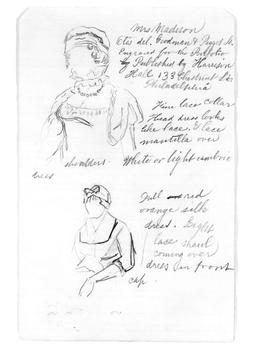 Mrs. Madison
Otis del. Goodman & Piggot Sc.
Engraved for the Portfolio
by Published by Harrison
Hall 133 Chestnut St.
Philadelphia
Fine lace collar
Head dress looks
like lace. Lace
mantilla over
shoulders. White or light cambric
dress
Full red
orange silk
dress. Light
lace shawl
coming over
dress in front
cap.